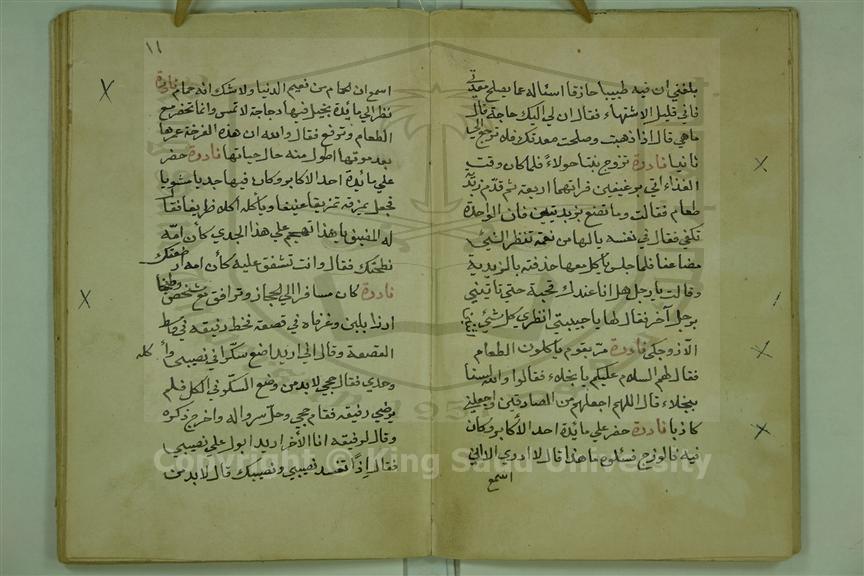 بلغني ان فيه طبيبا حازقا اسئاله عما يصلح معدتي
فاني قليل الاشتهاء فقال ان لي اليك حاجة قال
ماهي قال اذا ذهبت وصلحت معدتك فلا ترجع الي
ثانيا نادرة تزوج بنتا حولاء فلما كان وقت
الغداء اتي برغيفين فراتهما اربعة ثم قدم زبدية
طعام فقالت وما تصنع بزبديتين فان الواحدة
تكفي فقال في نفسه يالها من نعمة تنظر الشئ
مضاعفا فلما جلس ياكل معها حذفته بالزبدية
وقالت يارجل هل انا عندك قحبة حتي تاتيني
برجل آخر فقال لها يا حبيبتي انظري كل شئ
الا زوجك نادرة مر بقوم ياكلون الطعام
فقال لهم السلام عليكم يا بخلاء فقالوا والله لسنا
ببخلاء قال اللهم اجعلهم من الصادقين واجعلني
كاذبا نادرة حضر علي مائدة احد الأكابر وكان
فيه فالوزج فسئلوه ما هذا قال لا ادري الا اني
اسمع
١١
اسمع ان الحمام من نعيم الدنيا ولا شك انه حمام نادرة
نظر الي مائدة بخيل فيها دجاجة لا تمس وانما تحضر مع
الطعام وترفع فقال والله ان هذه الفرخة عمرها
بعد موتها اطول منه حال حياتها نادرة حضر
علي مائدة احد الاكابر وكان فيها جديا مشويا
فجعل يمزقه تمزيقا عنيفا وياكله اكلا ظريفا فقال
له المضيف يا هذا تهجم علي هذا الجدي كأن امه
نطحتك فقال وانت تشفق عليه كأن امه ارضعتك
نادرة كان مسافرا الي الحجاز وترافق مع شخص وطبخا
ارزا بلبن وغرفاه في قصعة فخط رفيقه في وسط
القصعة وقال اني اريد اضع سكرا في نصيبي وأكله
وحدي فقال جحي لابد من وضع السكر في الكل فلم
يرضي رفيقه فقام جحي وحل سرواله واخرج ذكره
وقال لرفيقه انا الآخر اريد ابول علي نصيبي
فقال إذا تفسد نصيبي ونصيبك قال لا بد من
Copyright © King Saud University
1957